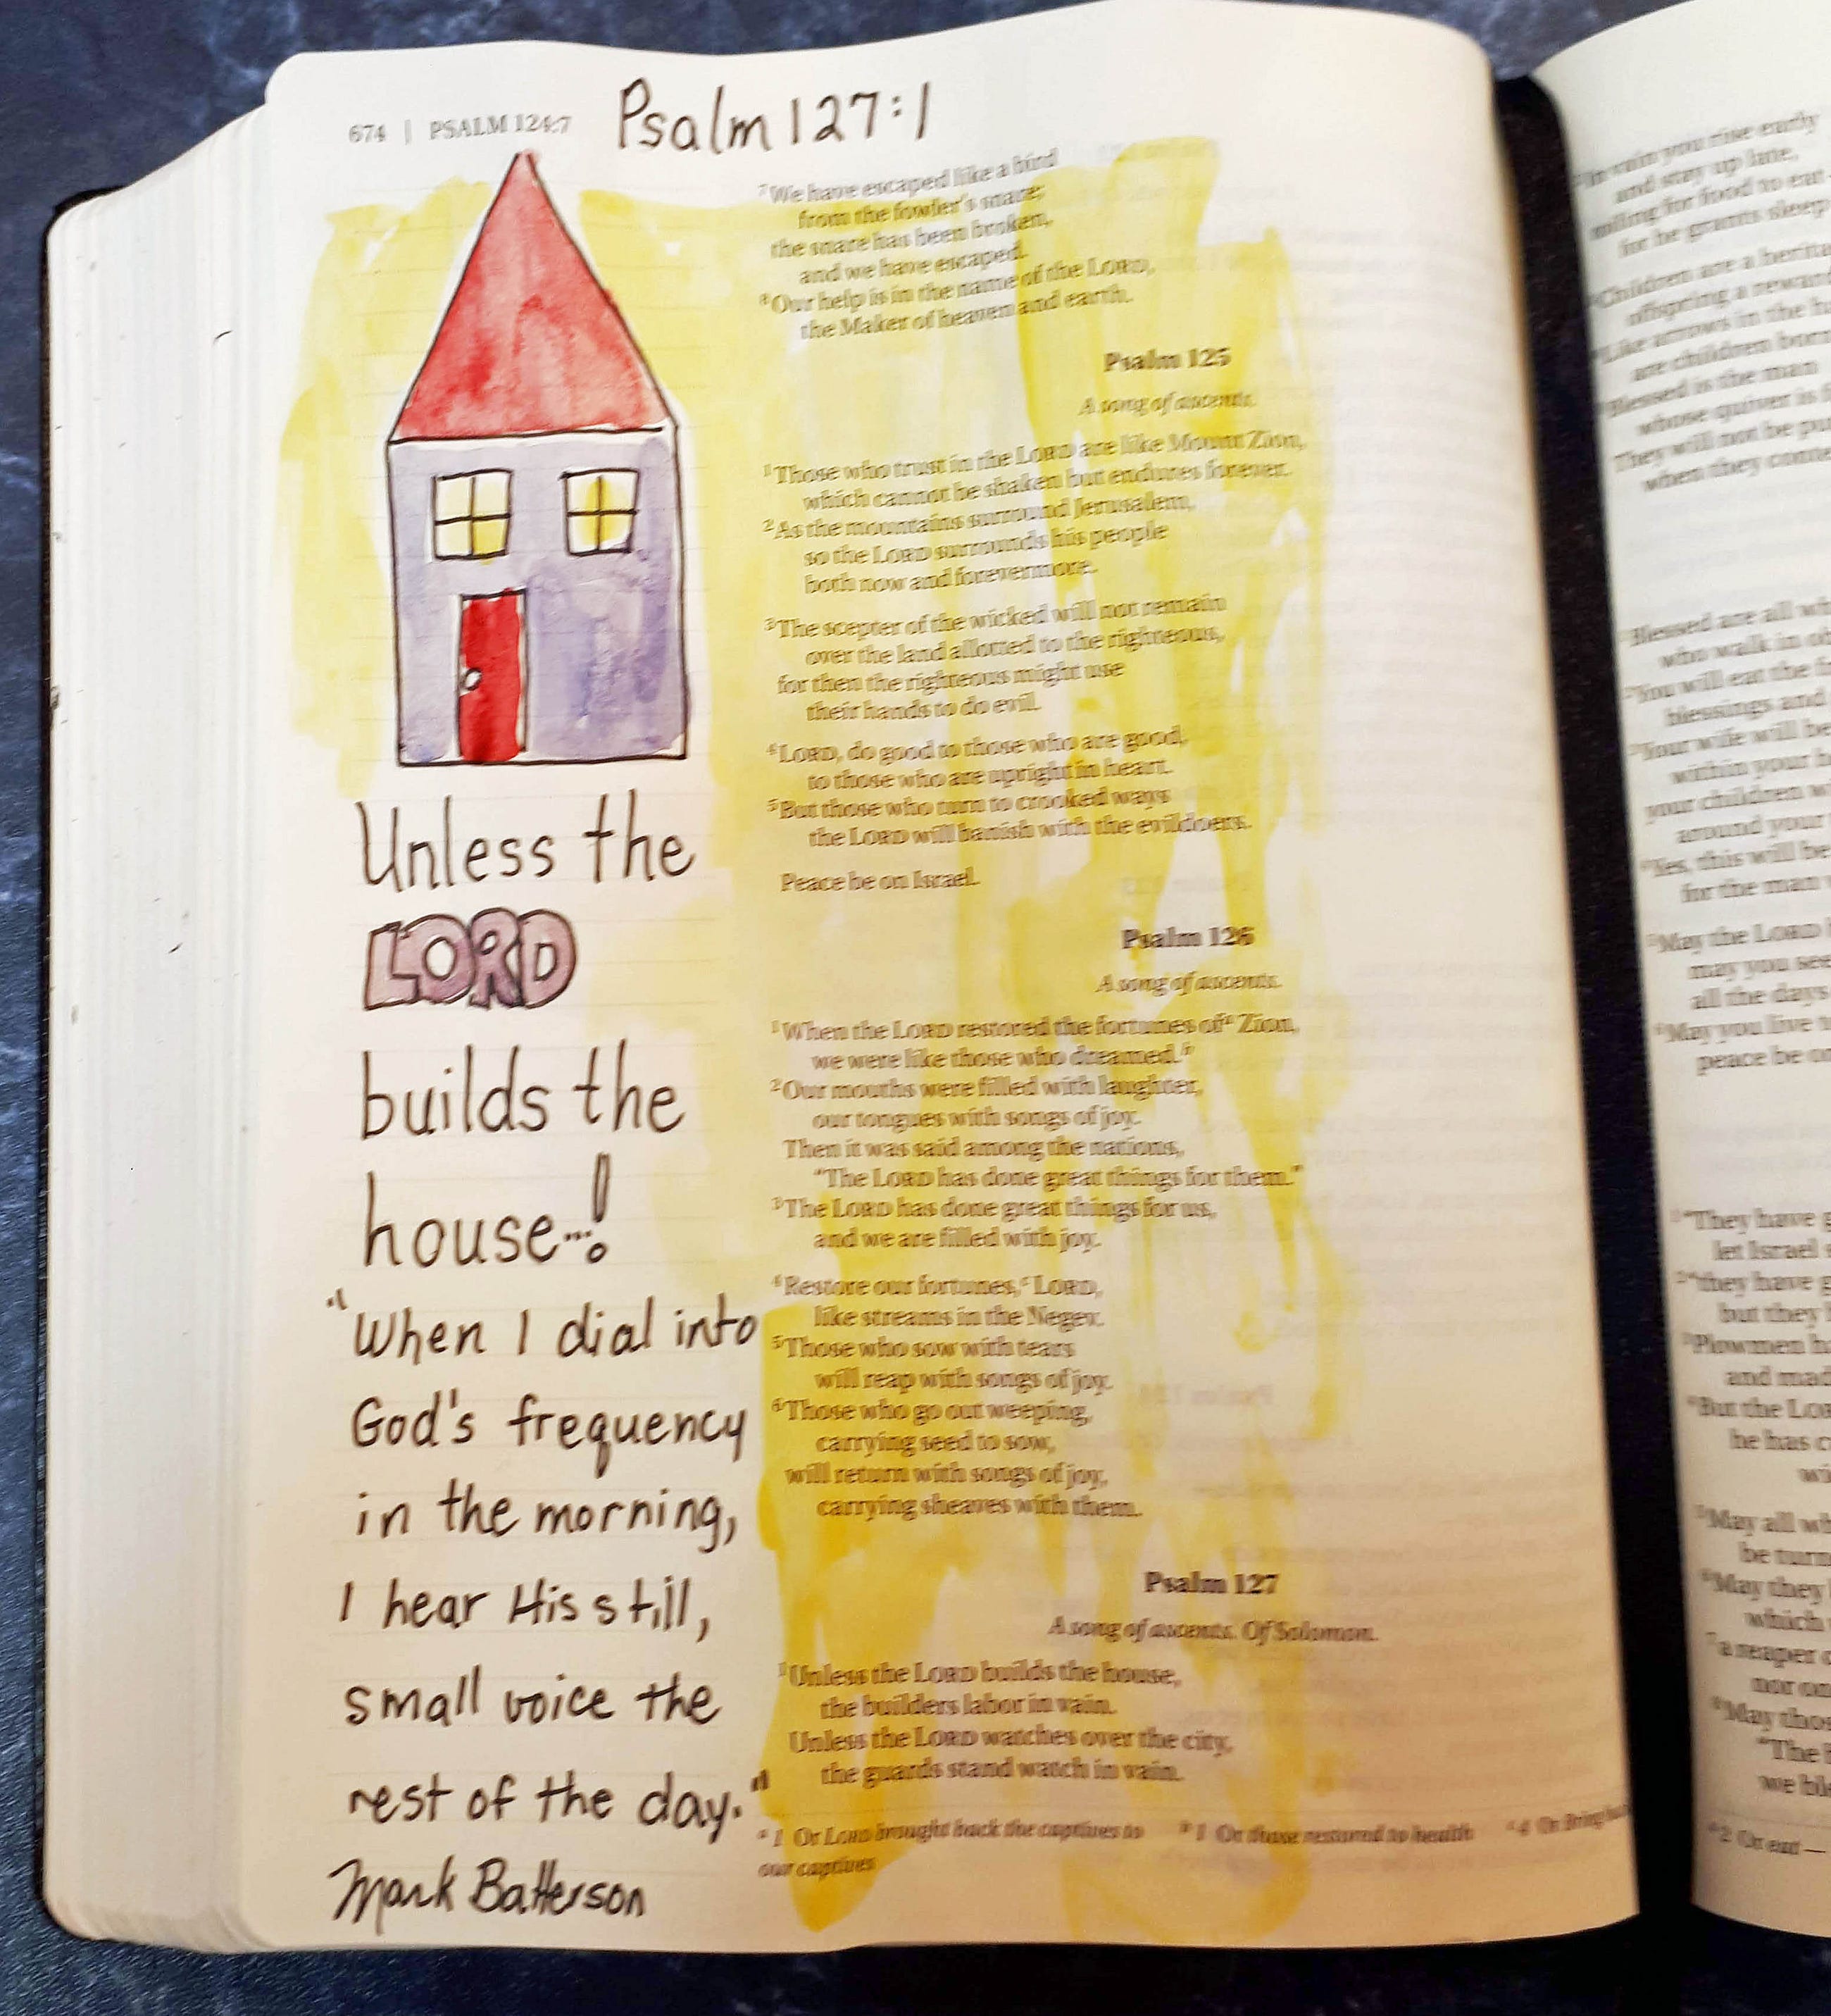 674 | PSALM 124:7
Psalm 127:1
Unless the
LORD
builds the
house...!
"When I dial into
God's frequency
in the morning,
I hear His still,
small voice the
rest of the day."
Mark Batterson
7 We have escaped like a bird
from the fowler's snare;
the snare has been broken,
and we have escaped.
8 Our help is in the name of the LORD,
the Maker of heaven and earth.
Psalm 125
A song of ascents.
1 Those who trust in the LORD are like Mount Zion,
which cannot be shaken but endures forever.
2 As the mountains surround Jerusalem,
so the LORD surrounds his people
both now and forevermore.
3 The scepter of the wicked will not remain
over the land allotted to the righteous,
for then the righteous might use
their hands to do evil.
4 LORD, do good to those who are good,
to those who are upright in heart.
5 But those who turn to crooked ways
the LORD will banish with the evildoers.
Peace be on Israel.
Psalm 126
A song of ascents.
1 When the LORD restored the fortunes of a Zion,
we were like those who dreamed. b
2 Our mouths were filled with laughter,
our tongues with songs of joy.
Then it was said among the nations,
"The LORD has done great things for them."
3 The LORD has done great things for us,
and we are filled with joy.
4 Restore our fortunes, c LORD,
like streams in the Negev.
5 Those who sow with tears
will reap with songs of joy.
6 Those who go out weeping,
carrying seed to sow,
will return with songs of joy,
carrying sheaves with them.
Psalm 127
A song of ascents. Of Solomon.
1 Unless the LORD builds the house,
the builders labor in vain.
Unless the LORD watches over the city,
the guards stand watch in vain.
a 1 Or LORD brought back the captives to b 1 Or those restored to health c 4 Or Bring back
our captives
In vain you rise early
and stay up late,
toiling for food to eat
for he grants sleep
Children are a herita
offspring a reward
Like arrows in the h
are children born
Blessed is the man
whose quiver is f
They will not be pu
when they conte
Blessed are all wh
who walk in ob
You will eat the f
blessings and
Your wife will be
within your h
your children w
around your
Yes, this will be
for the man
May the LORD
may you see
all the days
May you live t
peace be o
"They have g
let Israel s
"they have g
but they
Plowmen ha
and mad
But the LOR
he has c
May all wh
be turn
May they
which
a reaper
nor on
May thos
"The
we bl
2 Or eat —